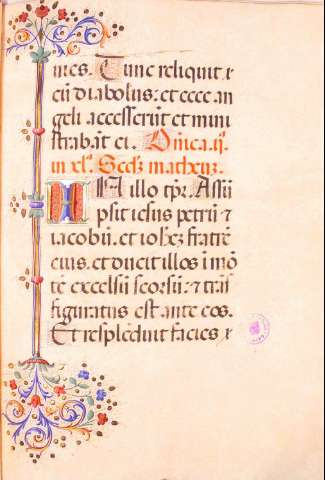 uies. Tunc reliquit e
ū diabolus: et ecce an
geli accesserūt et mini
strabāt ei. Dnica. ij.
in xl. Secdȝ matheuȝ.
IN illo tp̄r. Assū
psit iesus petrū ⁊
iacobū. et iohȝ fratrē
eius. et ducit illos ī mō
tē excelsū seorsū: ⁊ trās
figuratus est ante eos.
Et resplēduit facies e